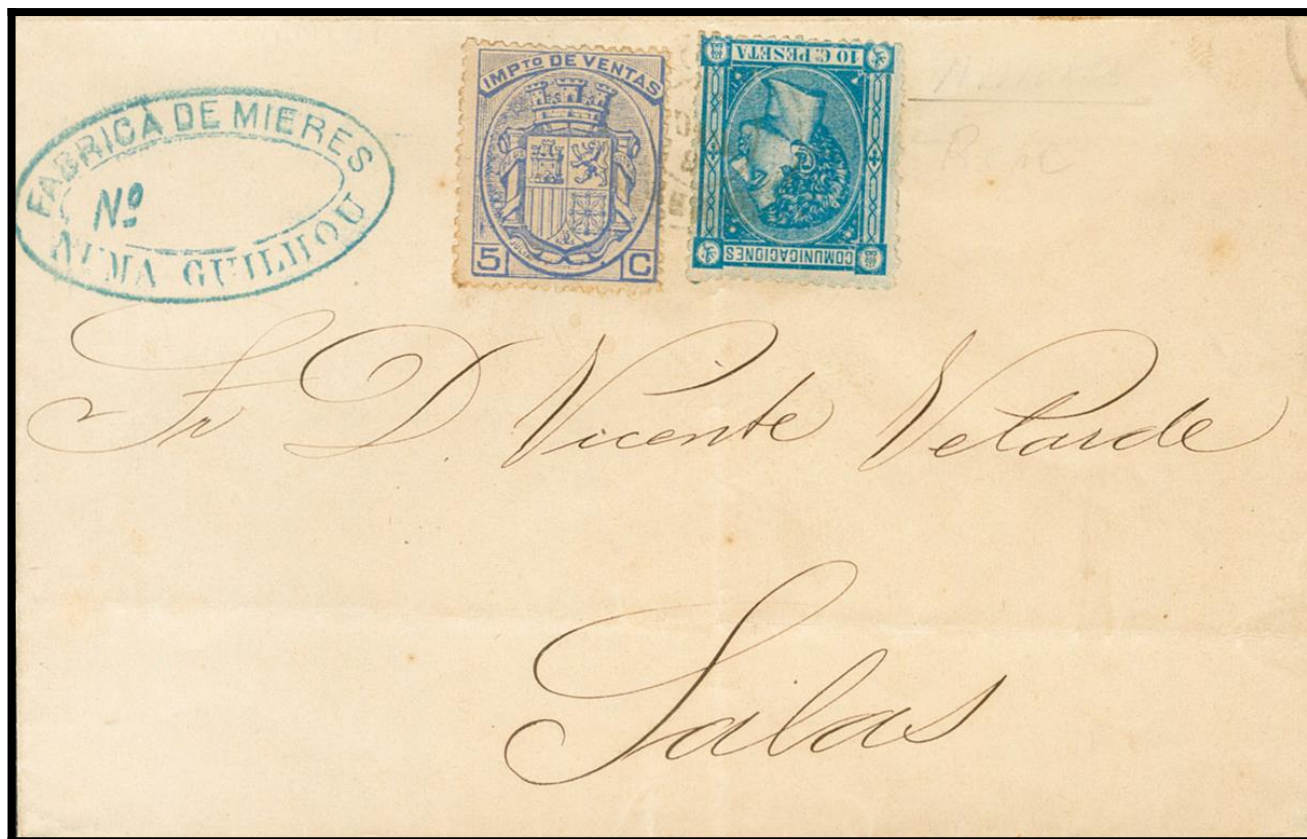 FABRICA DE MIERES
Nº
NUMA GUILHOU
IMPTO DE VENTAS
5 C
10 C. PESETA
COMUNICACIONES
Sr D. Vicente Velarde
Salas